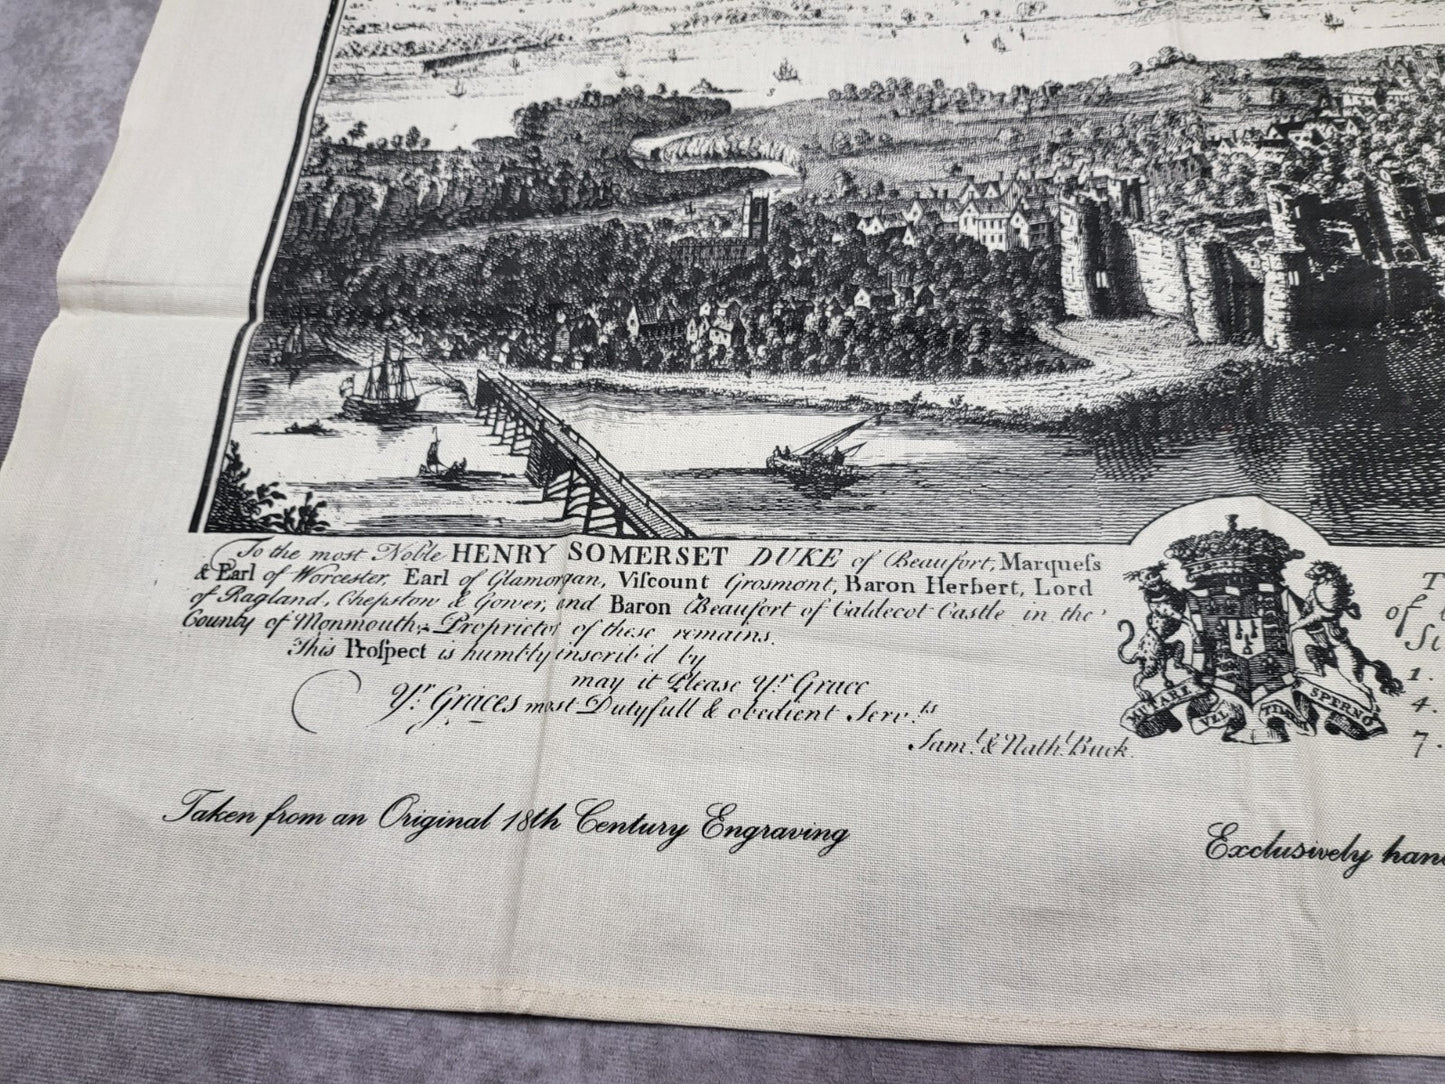 To the most Noble HENRY SOMERSET DUKE of Beaufort, Marqueſs
& Earl of Worcester, Earl of Glamorgan, Viſcount Grosmont, Baron Herbert, Lord
of Ragland, Chepstow & Gower, and Baron Beaufort of Caldecot Castle in the
County of Monmouth; Proprietor of these remains.
This Proſpect is humbly inscrib'd by
may it Please Yr Grace
Yr Graces most Dutyfull & obedient Servts
Saml & Nathl Buck
MUTARE VEL TIMERE SPERNO
T
of
1.
4.
7.
Taken from an Original 18th Century Engraving
Exclusively han